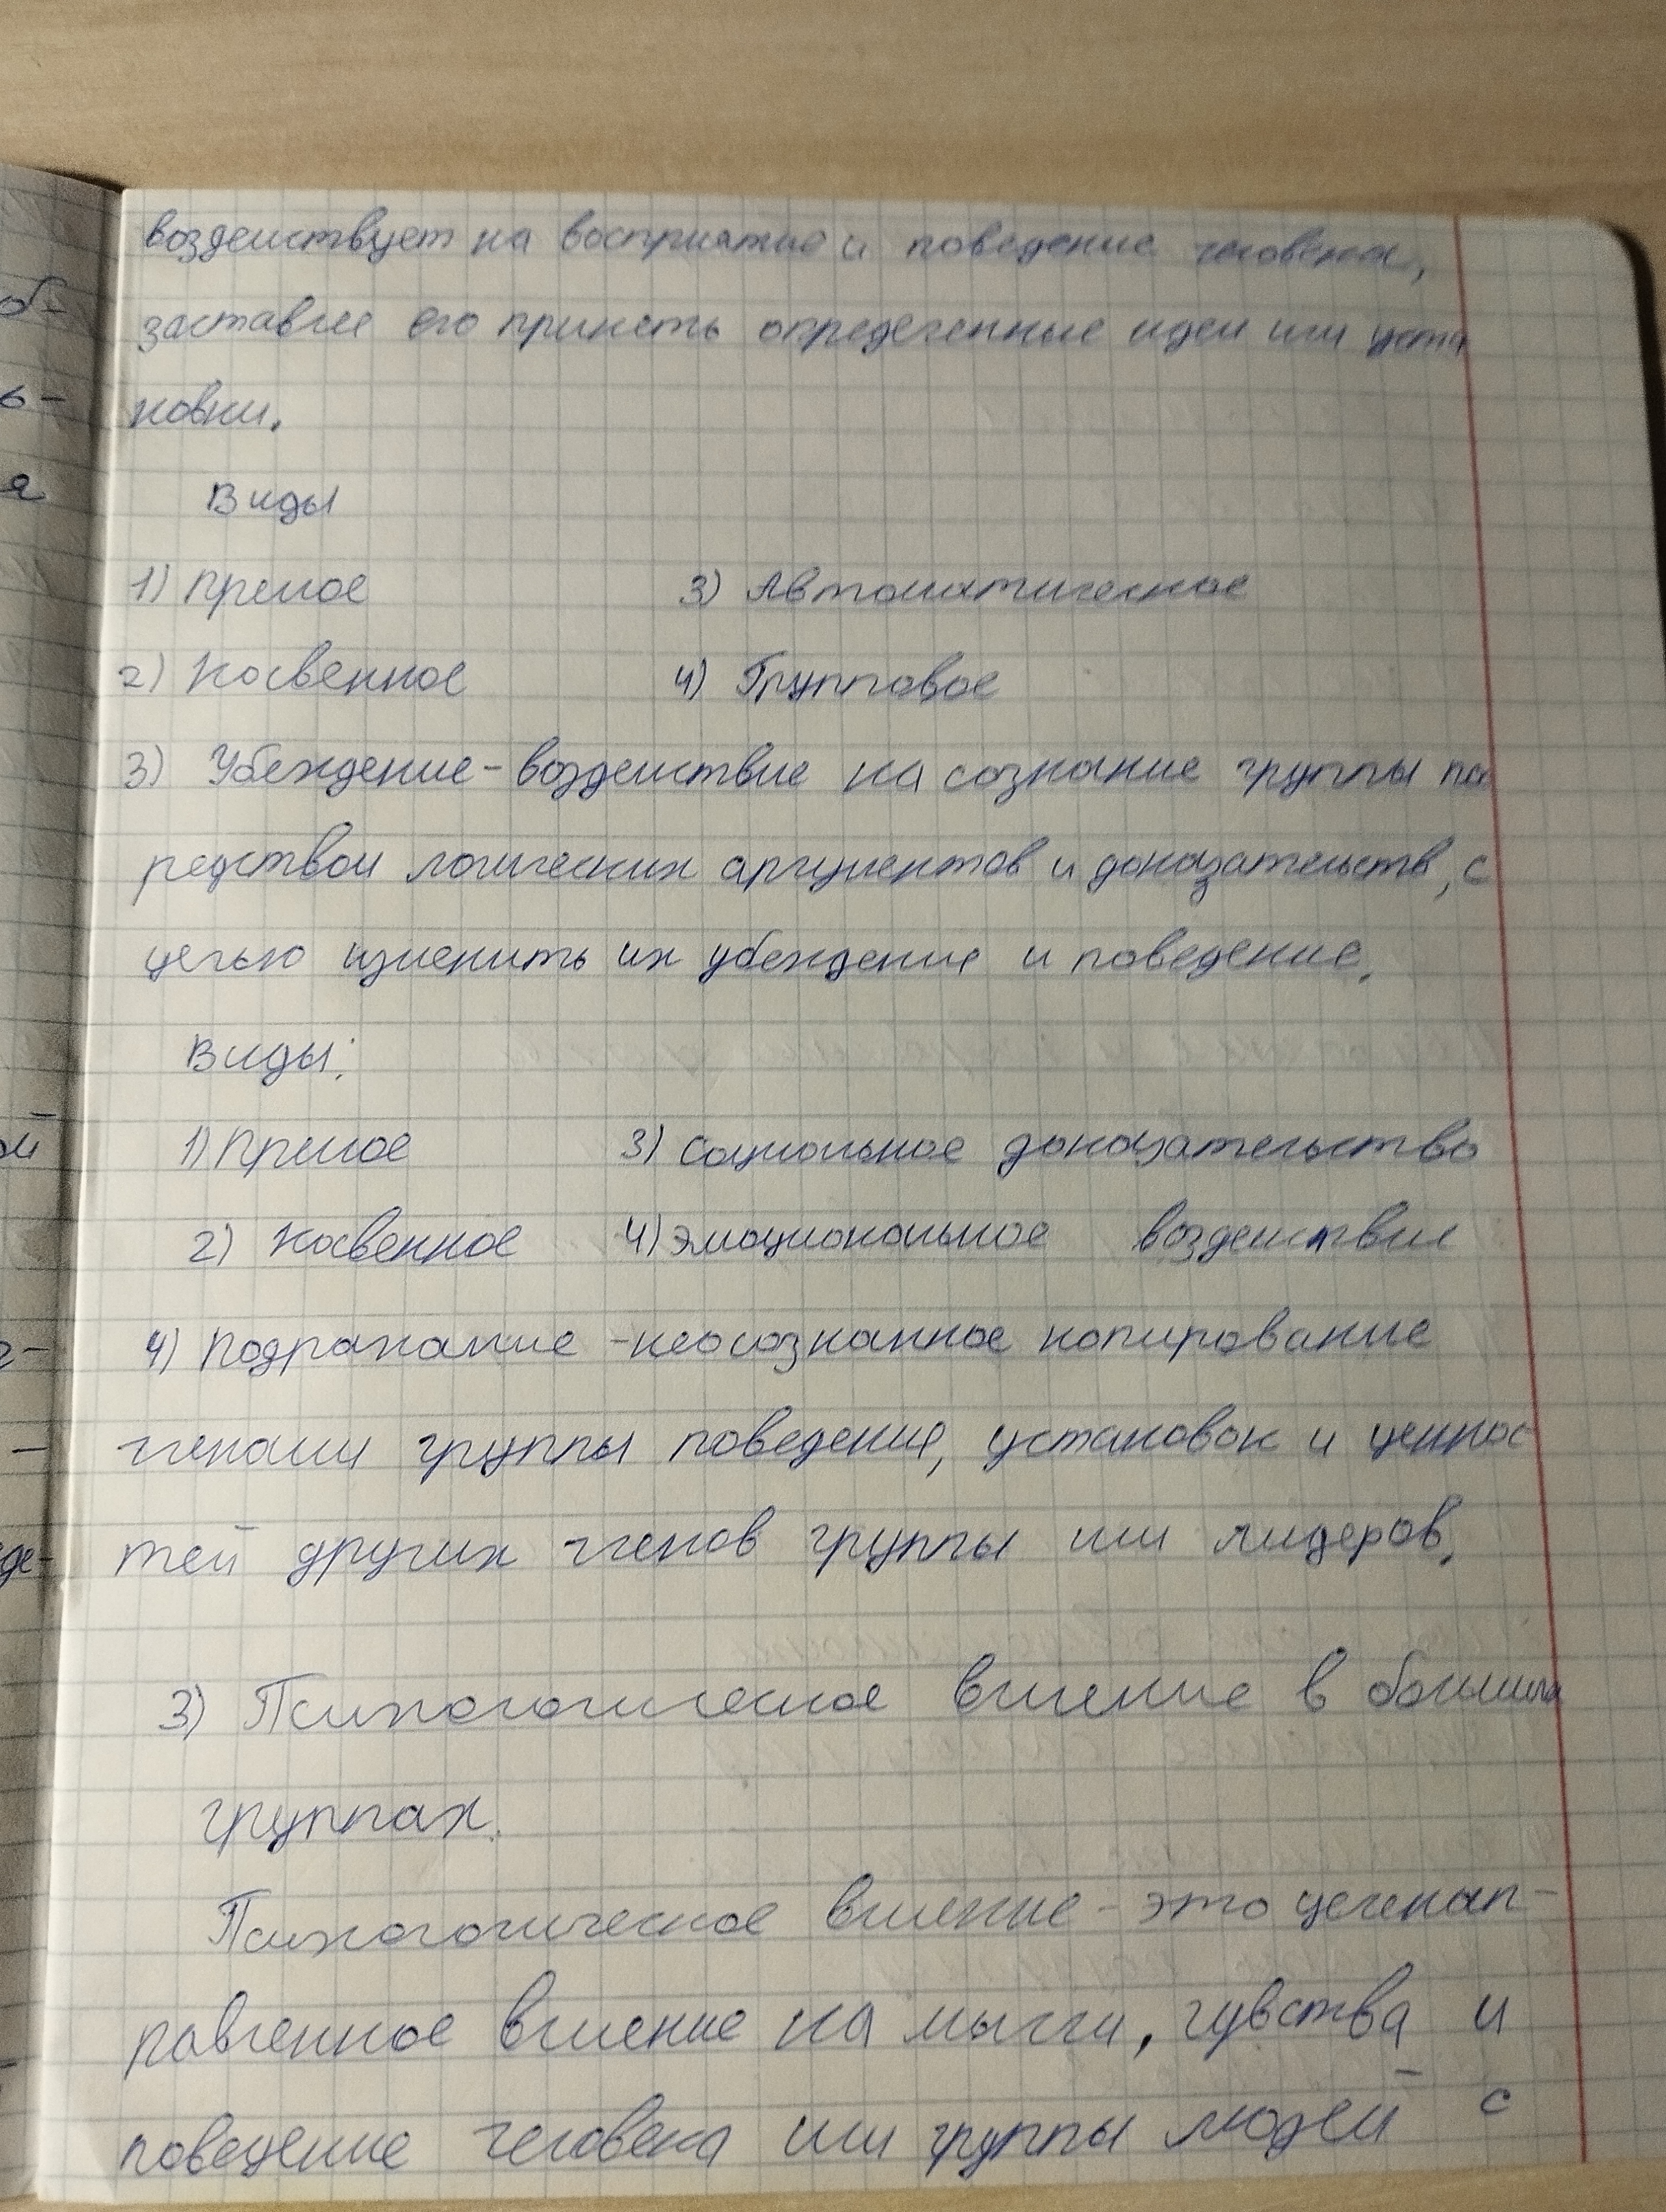 воздействует на восприятие и поведение человека,
заставляя его принять определенные идеи или уста
новки.
Виды
1) Прямое 3) Автоматическое
2) Косвенное 4) Групповое
3) Убеждение - воздействие на сознание группы по
редством логических аргументов и доказательств, с
целью изменить их убеждение и поведение.
Виды:
1) Прямое 3) Социальное доказательство
2) Косвенное 4) Эмоциональное воздействие
4) Подражание - неосознанное копирование
членами группы поведения, установок и ценнос-
тей других членов группы или лидеров.
3) Психологическое влияние в больших
группах.
Психологическое влияние - это целенап-
равленное влияние на мысли, чувства и
поведение человека или группы людей с